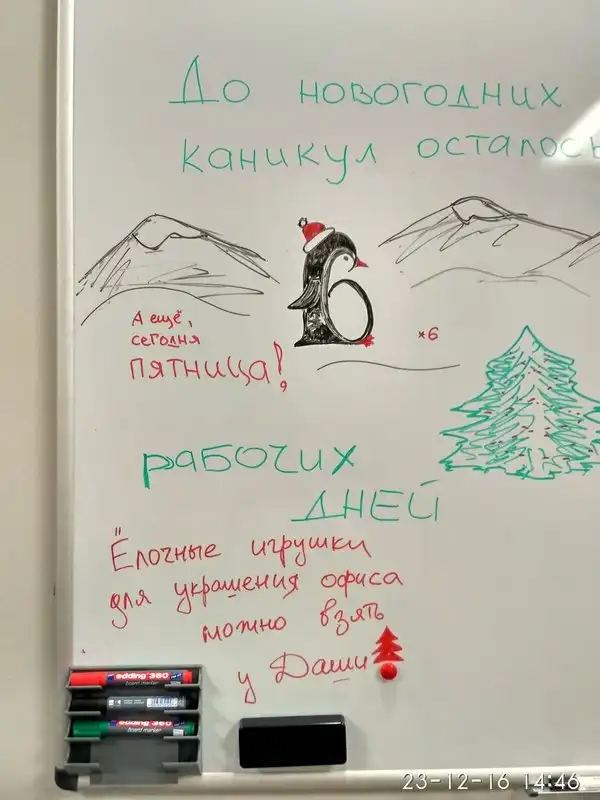 До новогодних
каникул осталось
6
*6
А ещё,
сегодня
пятница!
рабочих
дней
Ёлочные игрушки
для украшения офиса
можно взять
у Даши
edding 360
board marker
edding 360
board marker
23-12-16 14:46